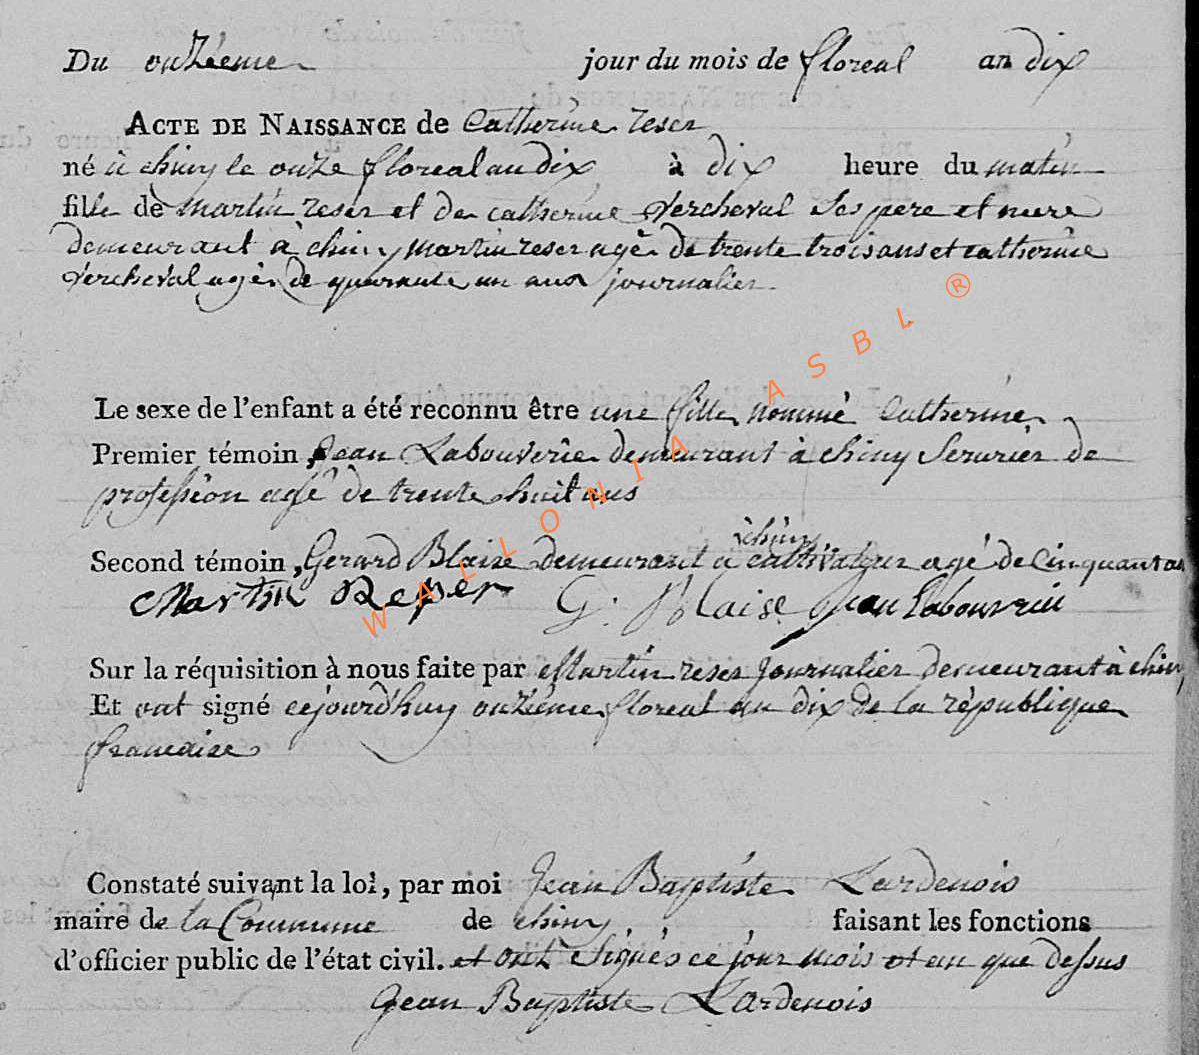 Du onzieme jour du mois de floreal an dix
ACTE DE NAISSANCE de Catherine reser
né à chiny le onze floreal an dix à dix heure du matin
fille de martin reser et de catherine Vercheval Ses pere et mere
demeurant à chiny martin reser agé de trente trois ans et catherine
Vercheval agé de quarante un ans journalier.
Le sexe de l'enfant a été reconnu être une fille nommé Catherine
Premier témoin, Jean Labouverie demeurant à chiny Serurier de
profession agé de trente huit ans
à chiny
Second témoin, Gerard Blaise demeurant a cultivateur agé de Cinquant ans
Martin Reser G. Blaise Jean Labouverie
Sur la réquisition à nous faite par Martin reser Journalier demeurant à chiny
Et ont signé cejourd'huy onzieme floreal an dix de la république
francaise
Constaté suivant la loi, par moi Jean Baptiste Lardenois
maire de la Commune de chiny faisant les fonctions
d'officier public de l'état civil. et ont Signés ce jour mois et an que dessus
Jean Baptiste Lardenois
WALLONIA ASBL ®